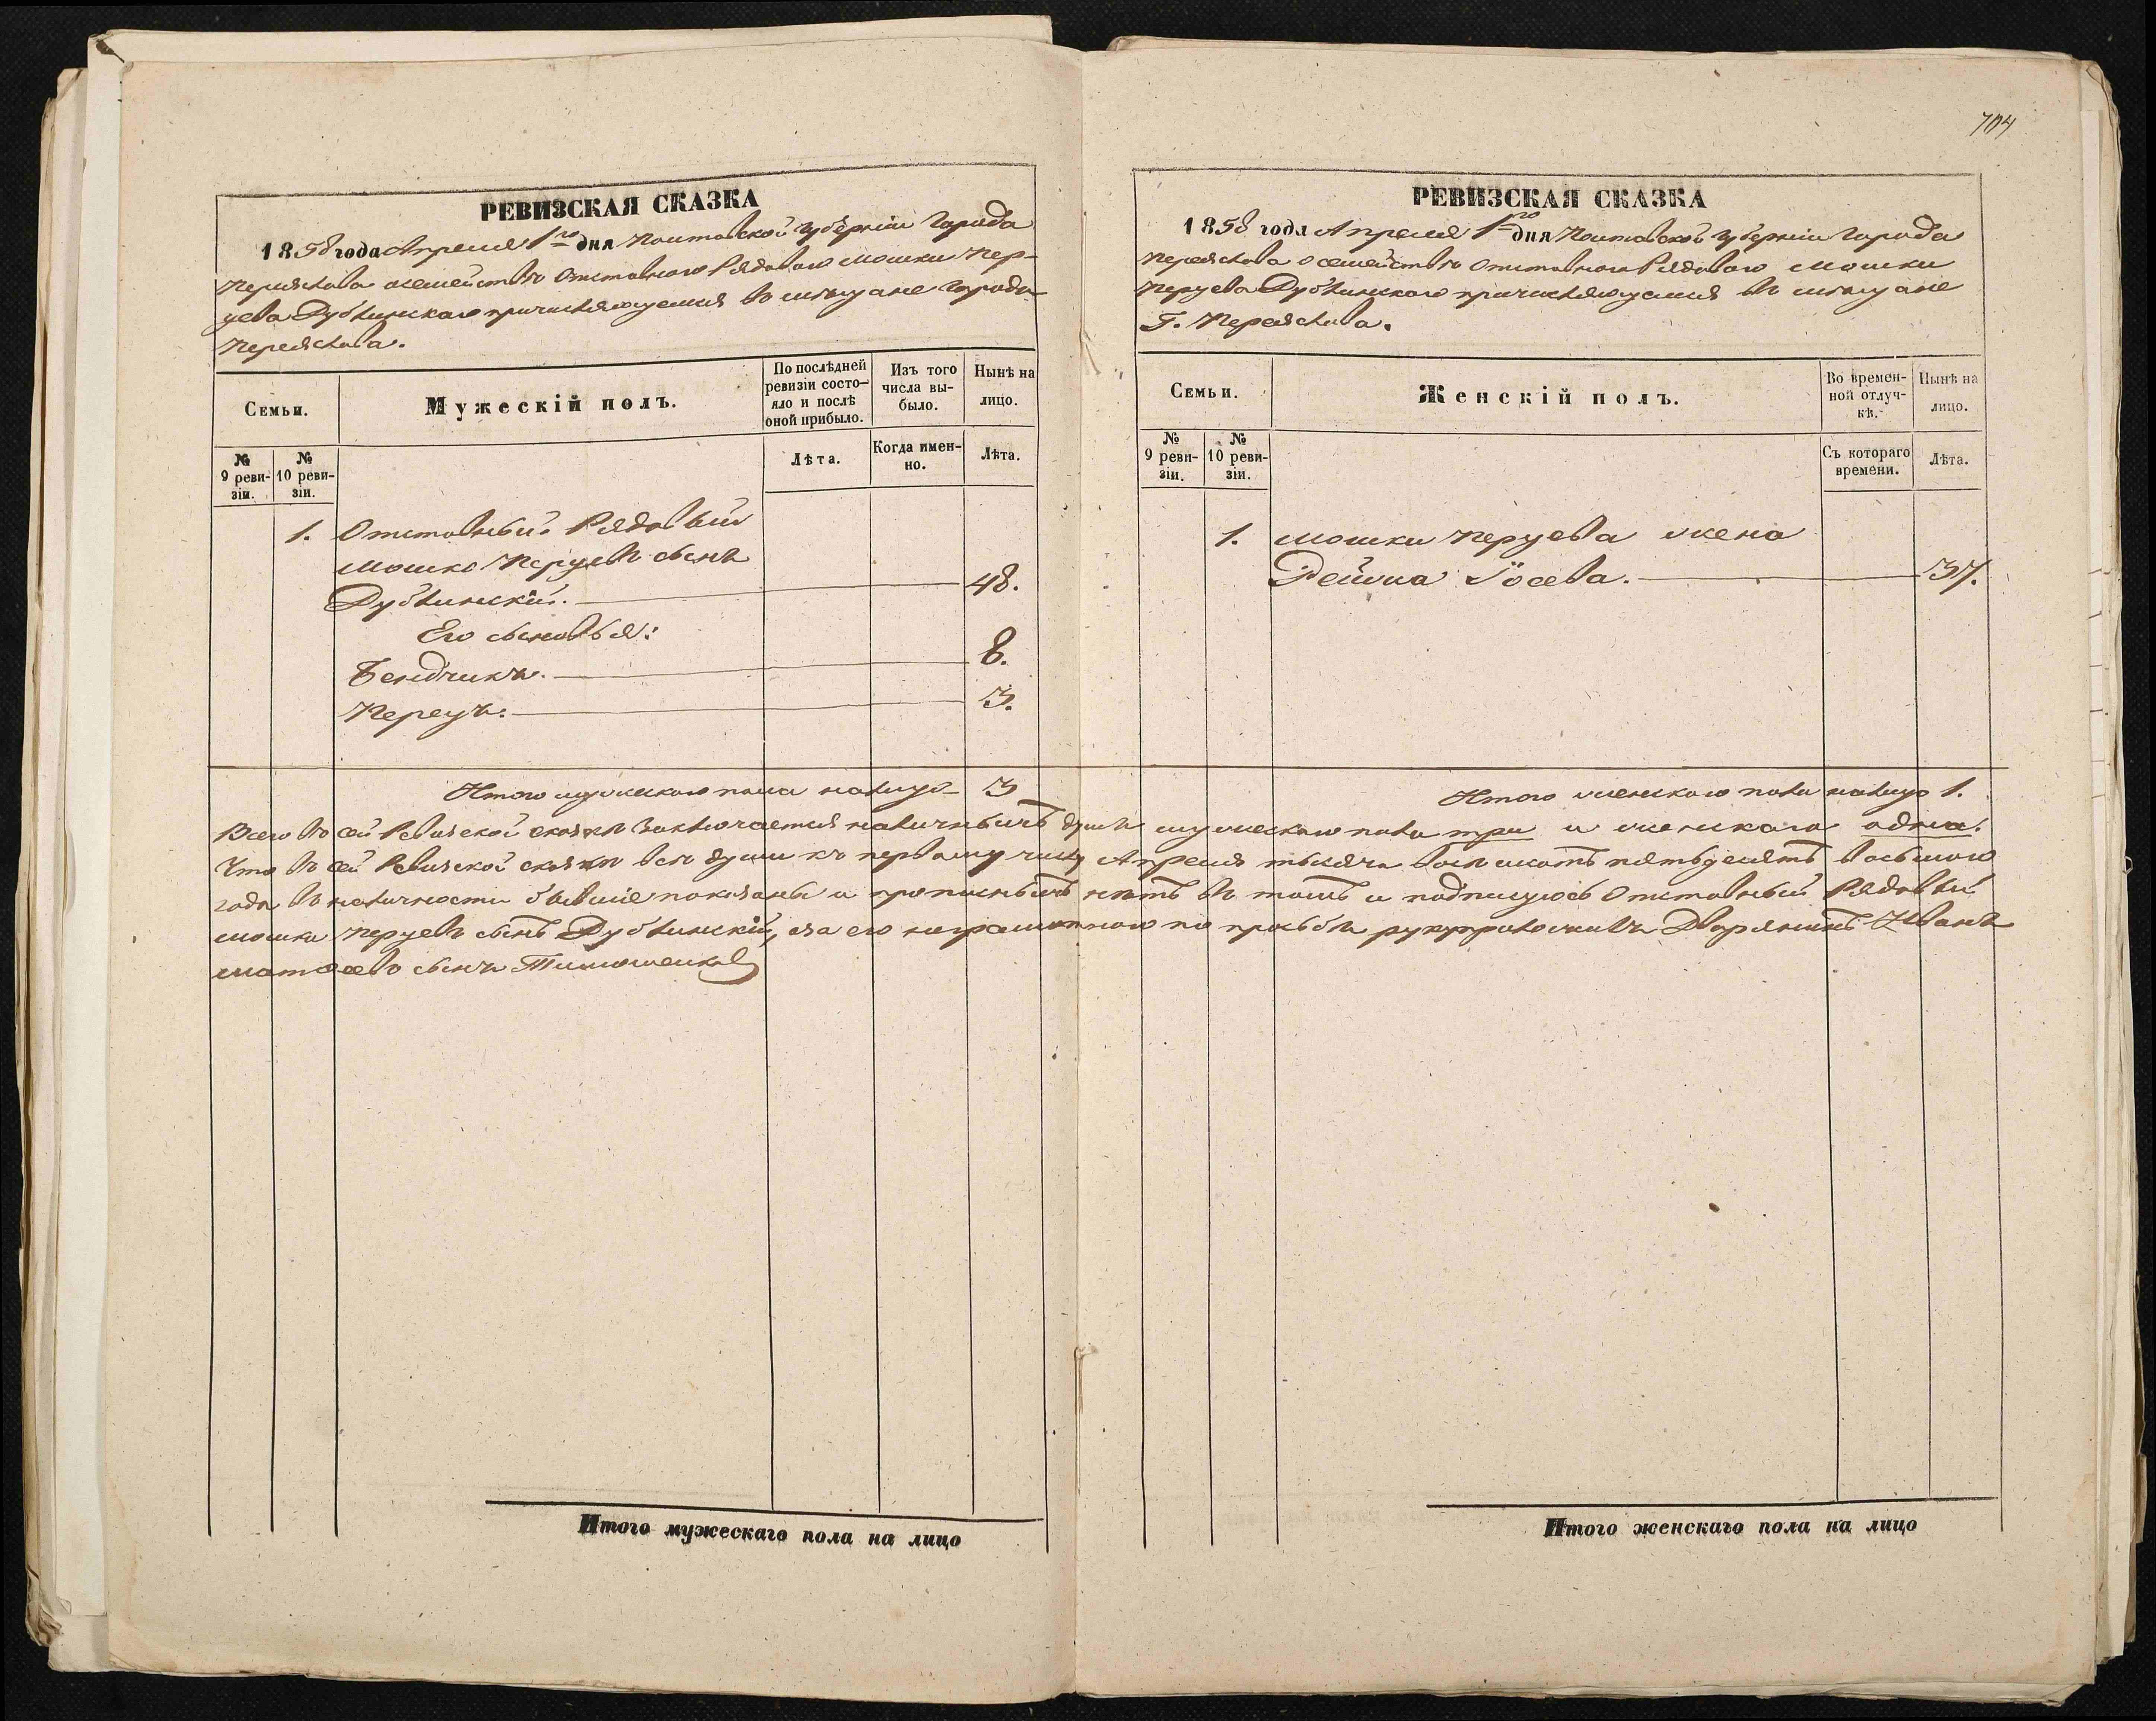 704
РЕВИЗСКАЯ СКАЗКА
1858 года Апреля 1го дня Полтавской Губерніи Города
Переяслава о семействѣ Отставного Рядоваго Мошки Пер-
цева Дублинскаго причисляющемся въ мѣщане города
Переяслава.
Семьи.
Мужескій полъ.
По послѣдней ревизіи состо-яло и послѣ оной прибыло.
Изъ того числа вы-было.
Нынѣ на лицо.
№ 9 реви-зіи.
№ 10 реви-зіи.
Лѣта.
Когда имен-но.
Лѣта.
1. Отставный Рядовый
Мошко Перцевъ сынъ
Дублинскій. 48.
Его сыновья:
Бендчикъ. 8.
Перецъ. 3.
Итого мужескаго пола налицо 3
РЕВИЗСКАЯ СКАЗКА
1858 года Апреля 1го дня Полтавской Губерніи Города
Переяслава о семействѣ Отставного Рядоваго Мошки
Перцева Дублинскаго причисляющемся въ мѣщане
Г. Переяслава.
Семьи.
Женскій полъ.
Во времен-ной отлуч-кѣ.
Нынѣ на лицо.
№ 9 реви-зіи.
№ 10 реви-зіи.
Съ котораго времени.
Лѣта.
1. Мошки Перцева жена
Рейзиа Іосева. 37.
Итого женскаго пола налицо 1.
Всего въ сей Ревизской сказкѣ заключается наличныхъ душъ мужескаго пола три и женскаго одна.
Что въ сей Ревизской сказкѣ всѣ души къ первому числу Апреля тысяча восемсотъ пятьдесятъ восьмого
года въ наличности бывшіе показаны и прописныхъ нѣтъ въ томъ и подписуюсь Отставный Рядовый
Мошка Перцевъ сынъ Дублинскій, а за его неграмотного по просьбѣ руку приложилъ Дворянинъ Иванъ
Матвеевъ сынъ Тимошенков
Итого мужескаго пола на лицо
Итого женскаго пола на лицо